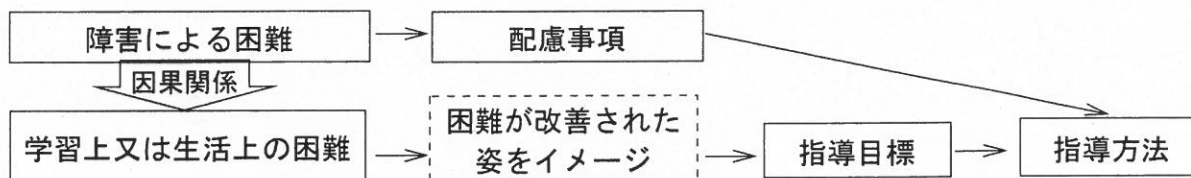 障害による困難
配慮事項
因果関係
学習上又は生活上の困難
困難が改善された
姿をイメージ
指導目標
指導方法